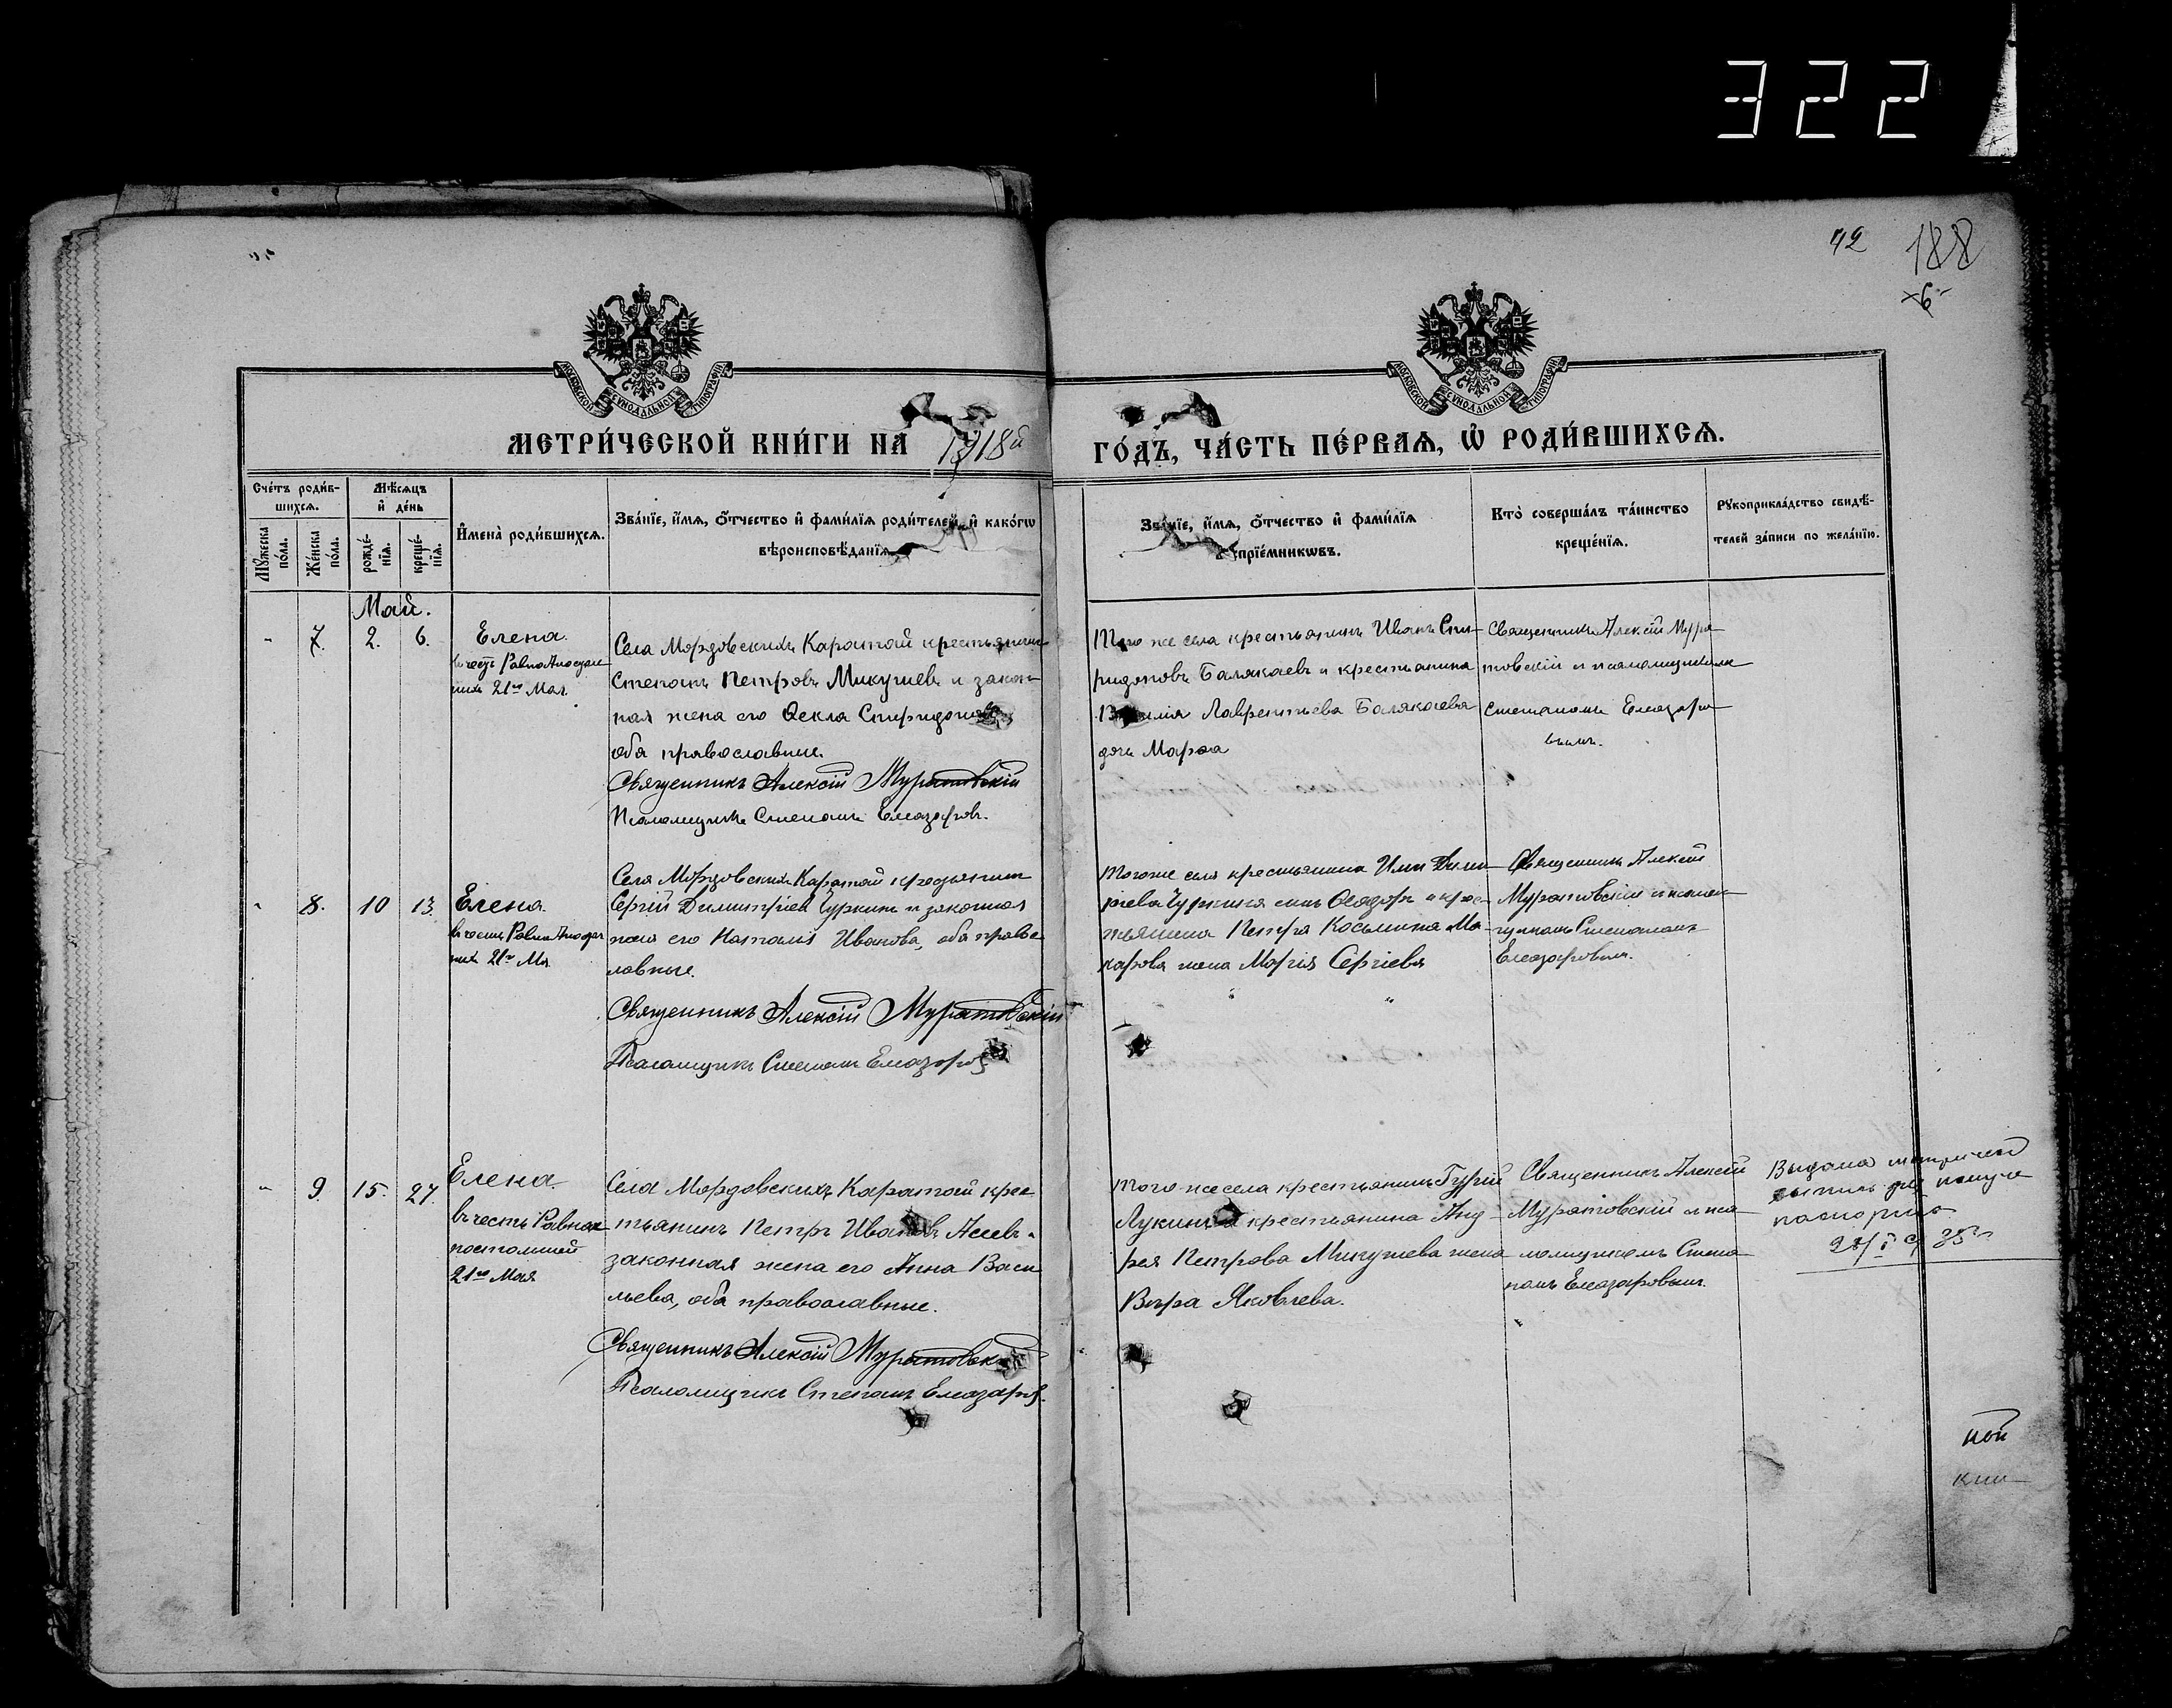 322
42
188
6
МОСКОВСКОЙ СѴНОДАЛЬНОЙ ТИПОГРАФІИ
МОСКОВСКОЙ СѴНОДАЛЬНОЙ ТИПОГРАФІИ
МЕТРИ́ЧЕСКОЙ КНИ́ГИ НА 1918й
ГО́ДЪ, ЧА́СТЬ ПЕ́РВАѦ, Ѽ РОДИ́ВШИХСѦ.
Сче́тъ роди́в-
шихсѧ.
Мѣ́сѧцъ
и҆ де́нь
Мꙋ́жеска
по́ла.
Же́нска
по́ла.
рожде́-
нїѧ.
креще́-
нїѧ.
И҆мена̀ роди́вшихсѧ.
Зва́нїе, и҆́мѧ, ѻ҆́тчество и҆ фами́лїѧ роди́телей, и҆ како́гѡ
вѣроисповѣ́данїѧ
Зва́нїе, и҆́мѧ, ѻ҆́тчество и҆ фами́лїѧ
спрїе́мникѡвъ.
Кто̀ соверша́лъ та́инство
креще́нїѧ.
Рꙋкоприкла́дство свидѣ́-
телей за́писи по жела́нїю.
Май.
- 7. 2. 6. Елена.
въ честь Равноапостоль
ныя 21го Мая
Села Мордовскихъ Каратай крестьянинъ
Степанъ Петровъ Микушевъ и закон-
ная жена его Ѳекла Спиридонова
оба православные.
Священникъ Алексій Муратовскій
Псаломщикъ Степанъ Елеазаровъ.
Того же села крестьянинъ Иванъ Спи-
ридоновъ Балякаевъ и крестьянина
Лаврентьева Балякаева
дочь Марѳа
Священникъ Алексій Мура
товскій и псаломщикомъ
Степаномъ Елеазаро
вымъ.
- 8. 10 13. Елена.
въ честь Равноапостол
ныя 21го Мая
Села Мордовскихъ Каратай крестьянинъ
Сергій Димитріевъ Чуркинъ и законная
жена его Наталія Иванова, оба право
лавные.
Священникъ Алексій Муратовскій
Псаломщикъ Степанъ Елеазаровъ
Того же села крестьянина Ильи Дими
ріева Чуркина сынъ Ѳеодоръ и крес-
тьянина Петра Косьмина Ма-
карова жена Марія Сергіева
Священникъ Алексій
Муратовскій и псалом
щикомъ Степаномъ
Елеазаровымъ.
- 9. 15. 27. Елена.
въ честь Равноап
постольной
21го Мая
Села Мордовскихъ Каратай крес
тьянинъ Петръ Ивановъ Асевъ и
законная жена его Анна Васи
льева, оба православные.
Священникъ Алексій Муратовскій
Псаломщикъ Степанъ Елеазаровъ.
Того же села крестьянинъ Гурій
Лукинъ и крестьянина Анд-
рея Петрова Микушева жена
Вѣра Яковлева.
Священникъ Алексій
Муратовскій и пса
ломщикомъ Степа
номъ Елеазаровымъ.
Выдана
паспорта
ной
кни